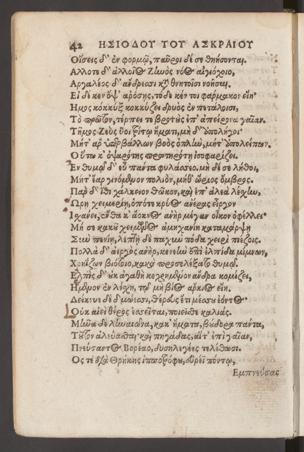 42 ΗΣΙΟΔΟΥ ΤΟΥ ΑΣΚΡΑΙΟΥ
Οἴσεις δ' ἐν φορμῷ, παῦροι δέ σε θηήσονται.
Ἄλλοτε δ' ἀλλοῖος Ζηνὸς νόος αἰγιόχοιο,
Ἀργαλέος δ' ἄνδρεσσι καὶ θνητοῖσι νοῆσαι.
Εἰ δέ κεν ὄψ' ἀρόσῃς, τόδε κέν τοι φάρμακον εἴη·
Ἦμος κόκκυξ κοκκύζει δρυὸς ἐν πετάλοισι,
Τὸ πρῶτον, τέρπει τε βροτοὺς ἐπ' ἀπείρονα γαῖαν.
Τῆμος Ζεὺς ὕοι τρίτῳ ἤματι, μὴ δ' ἀπολήγοι·
Μήτ' ἄρ' ὑπερβάλλων βοὸς ὁπλὴν, μήτ' ὑπολείπων.
Οὕτω κ' ὀψαρότης πρωτηρότῃ ἰσοφαρίζοι.
Ἐν θυμῷ δ' εὖ πάντα φυλάσσεο, μὴ δέ σε λήθοι,
Μήτ' ἔαρ γινόμενον πολιὸν, μήθ' ὥριος ὄμβρος.
Πὰρ δ' ἴθι χάλκειον θῶκον, καὶ ἐπ' ἀλέα λέσχην,
Ὥρῃ χειμερίῃ, ὁπότε κρύος ἀνέρας εἶργον
Ἰχάνει, ἔνθα κ' ἄοκνος ἀνὴρ μέγαν οἶκον ὀφέλλει·
Μή σε κακοῦ χειμῶνος ἀμηχανίη καταμάρψῃ
Σὺν πενίῃ, λεπτῇ δὲ παχὺν πόδα χειρὶ πιέζοις.
Πολλὰ δ' ἀεργὸς ἀνὴρ, κενεὴν ἐπὶ ἐλπίδα μίμνων,
Χρηίζων βιότοιο, κακὰ προσελέξατο θυμῷ.
Ἐλπὶς δ' οὐκ ἀγαθὴ κεχρημένον ἄνδρα κομίζει,
Ἥμενον ἐν λέσχῃ, τῷ μὴ βίος ἄρκιος εἴη.
Δείκνυε δὲ δμώεσσι, θέρους ἔτι μέσσου ἐόντος·
Οὐκ αἰεὶ θέρος ἐσσεῖται, ποιεῖσθε καλιάς.
Μῆνα δὲ ληναιῶνα, κάκ' ἤματα, βούδορα πάντα,
Τοῦτον ἀλεύασθαι καὶ πηγάδας, αἵτ' ἐπὶ γαῖαν,
Πνεύσαντος Βορέαο, δυσηλεγέες τελέθουσι.
Ὅς τε διὰ Θρῄκης ἱπποτρόφου, εὐρέϊ πόντῳ,
Ἐμπνεύσας